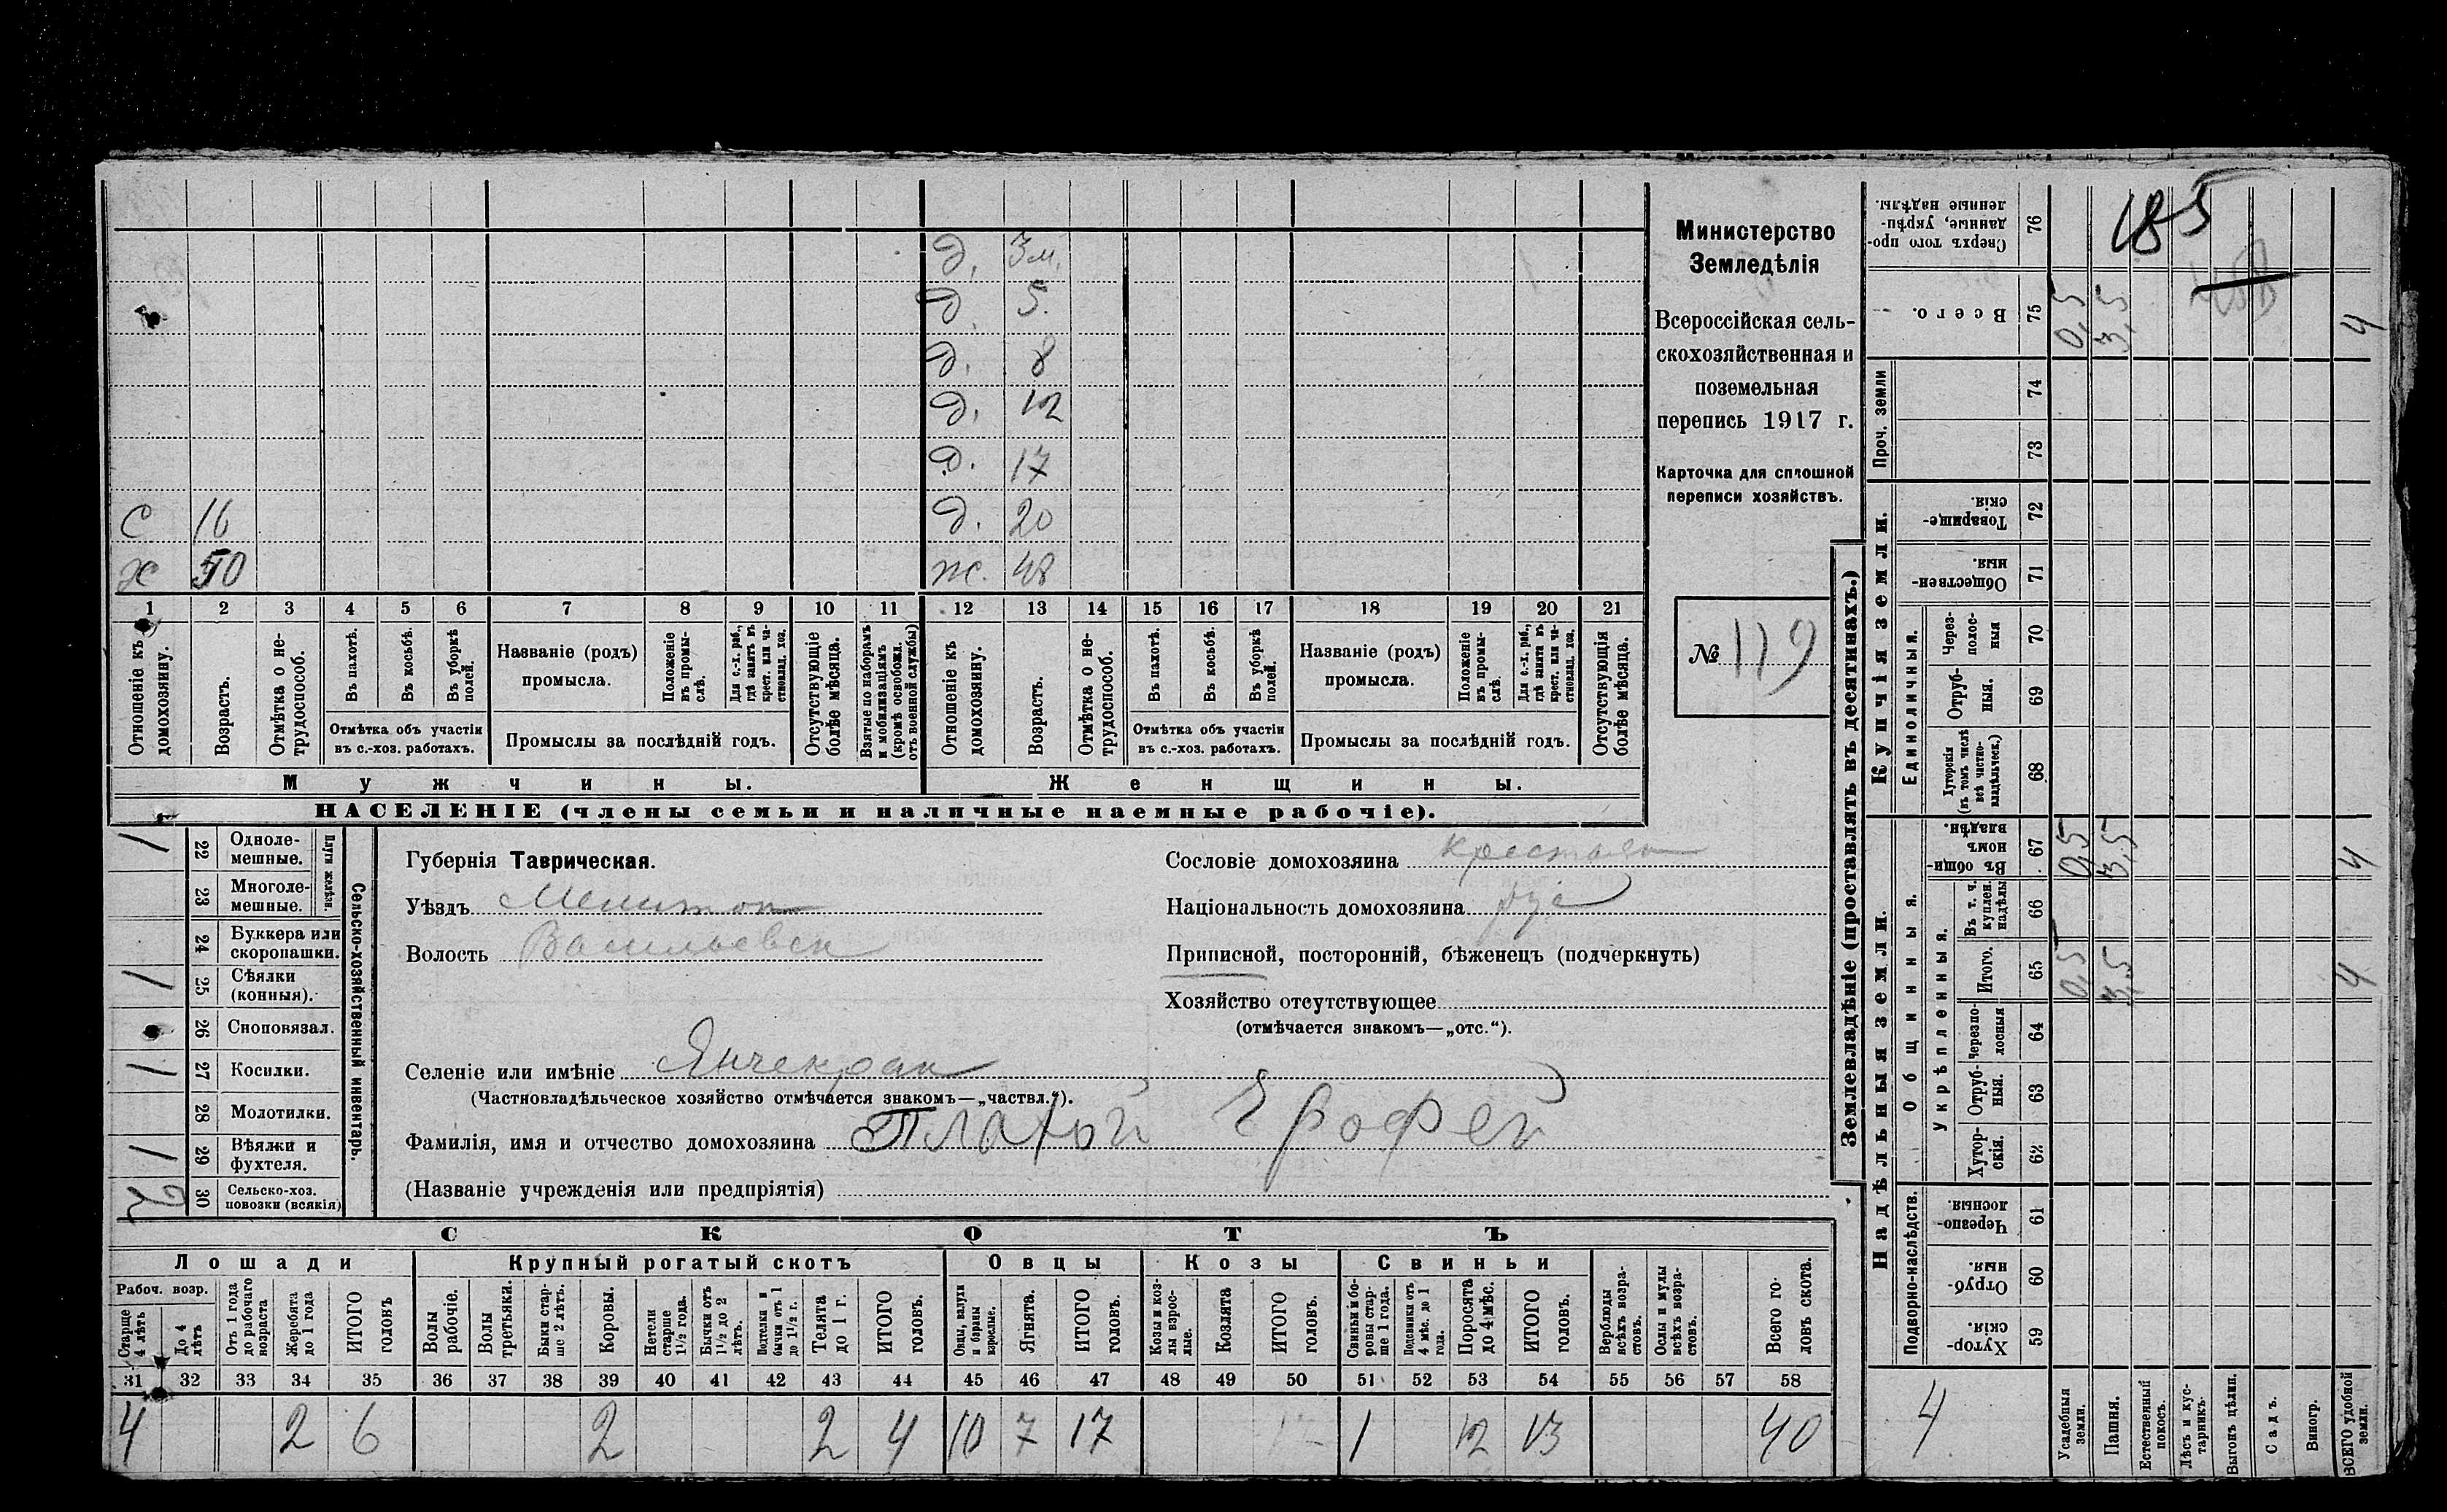 д. 3 м.
д. 5.
д. 8
д. 12
д. 17
с 16 д. 20
х 50 ж. 48
1 2 3 4 5 6 7 8 9 10 11 12 13 14 15 16 17 18 19 20 21
Отношеніе къ домохозяину.
Возрастъ.
Отмѣтка о не-трудоспособ.
Въ пахотѣ.
Въ косьбѣ.
Въ уборкѣ полей.
Отмѣтка объ участіи
въ с.-хоз. работахъ.
Названіе (родъ)
промысла.
Положеніе въ промы-слѣ.
Для с.-х. раб., гдѣ занятъ въ крест. или ча-стновлад. хоз.
Промыслы за послѣдній годъ.
Отсутствующіе болѣе мѣсяца.
Взятые по наборамъ и мобилизаціямъ (кромѣ освобожд. отъ военной службы)
Отношеніе къ домохозяину.
Возрастъ.
Отмѣтка о не-трудоспособ.
Въ пахотѣ.
Въ косьбѣ.
Въ уборкѣ полей.
Отмѣтка объ участіи
въ с.-хоз. работахъ.
Названіе (родъ)
промысла.
Положеніе въ промы-слѣ.
Для с.-х. раб., гдѣ занята въ крест. или ча-стновлад. хоз.
Промыслы за послѣдній годъ.
Отсутствующія болѣе мѣсяца.
Мужчины. Женщины.
НАСЕЛЕНІЕ (члены семьи и наличные наемные рабочіе).
Министерство
Земледѣлія
Всероссійская сель-
скохозяйственная и
поземельная
перепись 1917 г.
Карточка для сплошной
переписи хозяйствъ.
№ 119
1 22 Одноле-мешные.
23 Многоле-мешные.
Плуги желѣзн.
24 Буккера или скоропашки.
1 25 Сѣялки (конныя).
26 Сноповязал.
1 27 Косилки.
28 Молотилки.
1 29 Вѣялки и фухтеля.
2 30 Сельско-хоз. повозки (всякія)
Сельско-хозяйственный инвентарь.
Губернія Таврическая.
Уѣздъ Мелитоп
Волость Васильевск
Сословіе домохозяина крестьян
Національность домохозяина рус
Приписной, посторонній, бѣженецъ (подчеркнуть)
Хозяйство отсутствующее
(отмѣчается знакомъ—„отс.“).
Селеніе или имѣніе Янчекрак
(Частновладѣльческое хозяйство отмѣчается знакомъ—„частвл.“).
Фамилія, имя и отчество домохозяина Плахой Ерофей
(Названіе учрежденія или предпріятія)
СКОТЪ
Лошади Крупный рогатый скотъ Овцы Козы Свиньи
Рабоч. возр.
Старше 4 лѣтъ
До 4 лѣтъ
Отъ 1 года до рабочаго возраста
Жеребята до 1 года
ИТОГО головъ
Волы рабочіе.
Волы третьяки.
Быки стар-ше 2 лѣтъ.
Коровы.
Нетели старше 1½ года.
Бычки отъ 1½ до 2 лѣтъ.
Подтелки и бычки отъ 1 до 1½ г.
Телята до 1 г.
ИТОГО головъ.
Овцы, валухи и бараны взрослые.
Ягнята.
ИТОГО головъ.
Козы и коз-лы взрос-лые.
Козлята
ИТОГО головъ.
Свиньи и бо-ровы стар-ше 1 года.
Подсвинки отъ 4 мѣс. до 1 года.
Поросята до 4 мѣс.
ИТОГО головъ.
Верблюды всѣхъ возра-стовъ.
Ослы и мулы всѣхъ возра-стовъ.
Всего го-ловъ скота.
31 32 33 34 35 36 37 38 39 40 41 42 43 44 45 46 47 48 49 50 51 52 53 54 55 56 57 58
4 2 6 2 2 4 10 7 17 1 12 13 40
Землевладѣніе (проставлять въ десятинахъ.)
Сверхъ того про-данные, укрѣп-ленные надѣлы. 76
185
Всего. 75 0,5 3,5 4
Проч. земли 74
73
Купчія земли.
Товарище-скія. 72
Обществен-ныя. 71
Единоличныя.
Через-полос-ныя 70
Отруб-ныя. 69
Хуторскія (въ томъ числѣ всѣ частно-владѣльческ.) 68
Надѣльныя земли.
Общинныя.
Въ общин-номъ владѣн. 67 0,5 3,5 4
Укрѣпленныя.
Въ т. ч. куплен. надѣлы 66
Итого. 65 0,5 3,5 4
Черезпо-лосныя 64
Отруб-ныя. 63
Хутор-скія. 62
Подворно-наслѣдств.
Черезпо-лосныя. 61
Отруб-ныя. 60
Хутор-скія. 59
4
Усадебныя земли.
Пашня.
Естественный покосъ.
Лѣсъ и кус-тарникъ.
Выгонъ цѣлин.
Садъ.
Виногр.
ВСЕГО удобной земли.